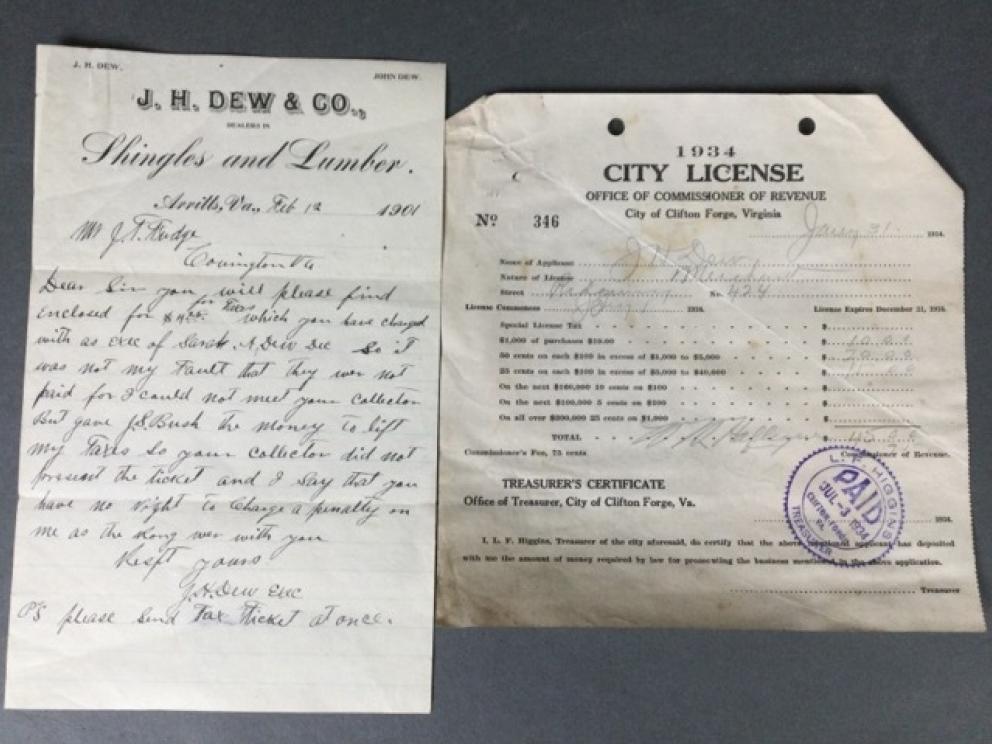 J. H. DEW.
JOHN DEW.
J. H. DEW & CO.,
DEALERS IN
Shingles and Lumber.
Arritts, Va., Feb 12 1901
Mr J. T. Fudge
Covington Va
Dear Sir you will please find
enclosed for for Taxes which you have charged
with as exec of Sarah A, Dew Dec So it
was not my Fault that they wer not
paid for I could not meet your collector
But gave J.S. Bush the money to lift
my Taxes So your collector did not
present the ticket and I say that you
have no right to Charge a penalty on
me as the Rong wer with you
Resft yours
J.H. Dew Exc
PS please send Tax Ticket at once.
1934
CITY LICENSE
OFFICE OF COMMISSIONER OF REVENUE
City of Clifton Forge, Virginia
No 346
31 1934.
Name of Applicant J H Dew
Nature of License Merchant
Street Ridgeway No. 424
License Commences 1934. License Expires December 31, 1934.
Special License Tax $
$1,000 of purchases $10.00 $
50 cents on each $100 in excess of $1,000 to $5,000 $
25 cents on each $100 in excess of $5,000 to $40,000 $
On the next $100,000 10 cents on $100 $
On the next $100,000 5 cents on $200 $
On all over $300,000 25 cents on $1,000 $
TOTAL $
Commissioner's Fee, 75 cents Commissioner of Revenue.
TREASURER'S CERTIFICATE
Office of Treasurer, City of Clifton Forge, Va.
1934.
I, L. F. Higgins, Treasurer of the city aforesaid, do certify that the above mentioned applicant has deposited
with me the amount of money required by law for prosecuting the business mentioned in the above application.
Treasurer
L. F. HIGGINS
PAID
JUL -3 1934
CLIFTON FORGE
VA.
TREASURER